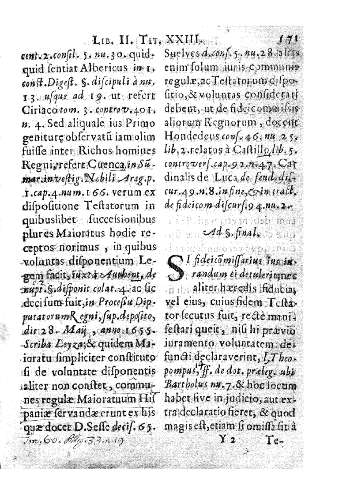 LIB. II. TIT. XXIII. 171
cent. 2. consil. 5. nu. 30. quid-
quid sentiat Albericus in l.
const. Digest. §. discipuli à nu.
13. usque ad 19. ut refert
Ciriaco tom. 3. controv. 401.
n. 4. Sed aliquale ius Primo
geniturę observatũ iam olim
fuisse inter Richos homines
Regni, refert Cuenca, in Sũ
mar. investig. Nobili Arag. p.
1. cap. 4. num. 166. verum ex
dispositione Testatorum in
quibuslibet successionibus
plures Maioratus hodie re-
ceptos norimus, in quibus
voluntas disponentium Le-
gem facit, iuxta Authent. de
nupt. §. disponit colat. 4. ac sic
decisum fuit, in Processu Dip-
putatorum Regni, sup. deposito,
die 28. Maij, anno 1655.
Scriba Leyza; & quidem Ma-
ioratu simpliciter constituto
si de voluntate disponentis
aliter non constet, commu-
nes regulæ Maioratuum His
paniæ servandæ erunt ex his
quæ docet D. Sesse decis. 65.
Suelves d. conf. 5. nu. 28. alias
enim solum iuris communis
regulæ, ac Testatorum dispo-
sitio, & voluntas considerari
debent, ut de fideicomissis
aliorum Regnorum, docent
Hondedeus cons. 46. nu 25.
lib. 2. relatus à Castillo, lib. 5.
controver. cap. 92. n. 47. Car
dinalis de Luca, de feud. dis-
cur. 49. n. 8. in fine, & in tract.
de fideicom discurs. 94. nu. 2.
Ad §. final.
SI fideicõmissarius ius iu-
randum ei detulerit que-
aliter hæredis fiducia,
vel eius, cuius fidem Testa-
tor secutus fuit, rectè mani-
festari queit, nisi hi prævio
iuramento voluntatem de-
functi declaraverint, l. Theo-
pompus, ff. de dot. præleg. ubi
Bartholus nu. 7. & hoc locum
habet sive in iudicio, aut ex-
tra declaratio fieret, & quod
magis est, etiam si omissa sit à
Y 2 Te-